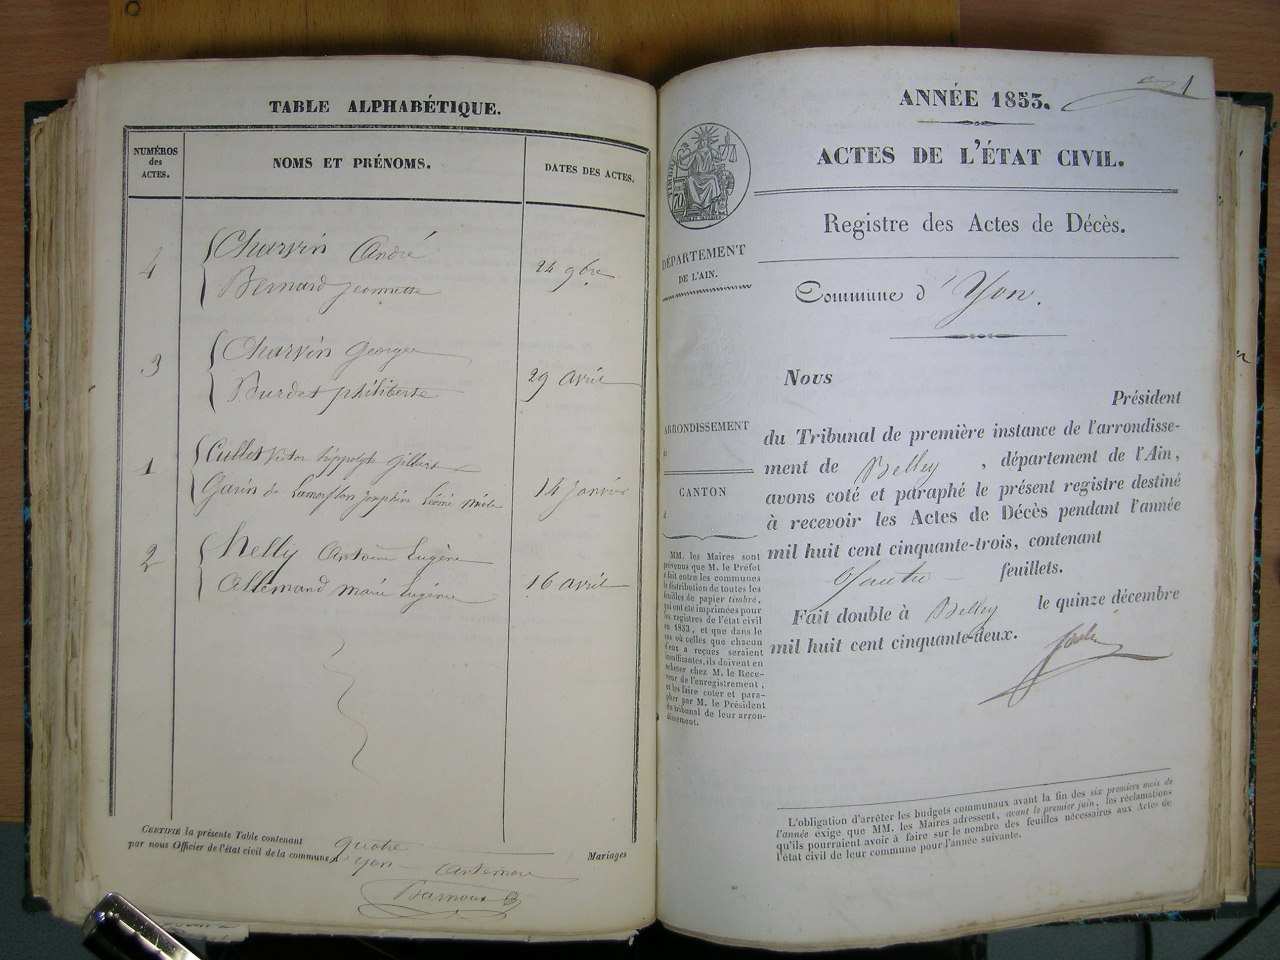 TABLE ALPHABÉTIQUE.
NUMÉROS
des
ACTES.
NOMS ET PRÉNOMS.
DATES DES ACTES.
4
Charvin André
Bernard Jeannette
24 9bre
3
Charvin George
Burdet philiberte
29 avril
1
Cullet Victor hippolyte Gilbert
Garin de Lamorflan Josephine
14 Janvier
2
Kelly Antoine Eugène
Allemand marie Eugénie
16 avril
CERTIFIÉ la présente Table contenant quatre Mariages
par nous Officier de l'état civil de la commune d'yon artemare
ANNÉE 1853.
ACTES DE L'ÉTAT CIVIL.
Registre des Actes de Décès.
DÉPARTEMENT
DE L'AIN.
Commune d'Yon.
Nous
Président
du Tribunal de première instance de l'arrondisse-
ment de Belley, département de l'Ain,
avons coté et paraphé le présent registre destiné
à recevoir les Actes de Décès pendant l'année
mil huit cent cinquante-trois, contenant
quatre feuillets.
Fait double à Belley le quinze décembre
mil huit cent cinquante-deux.
ARRONDISSEMENT
CANTON
MM. les Maires sont
prévenus que M. le Préfet
a fait entre les communes
la distribution de toutes les
feuilles de papier timbré,
qui ont été imprimées pour
les registres de l'état civil
en 1853, et que dans le
cas où celles que chacun
d'eux a reçues seraient
insuffisantes, ils doivent en
acheter chez M. le Rece-
veur de l'enregistrement,
et les faire coter et para-
pher par M. le Président
du tribunal de leur arron-
dissement.
L'obligation d'arrêter les budgets communaux avant la fin des six premiers mois de
l'année exige que MM. les Maires adressent, avant le premier juin, les réclamations
qu'ils pourraient avoir à faire sur le nombre des feuilles nécessaires aux Actes de
l'état civil de leur commune pour l'année suivante.